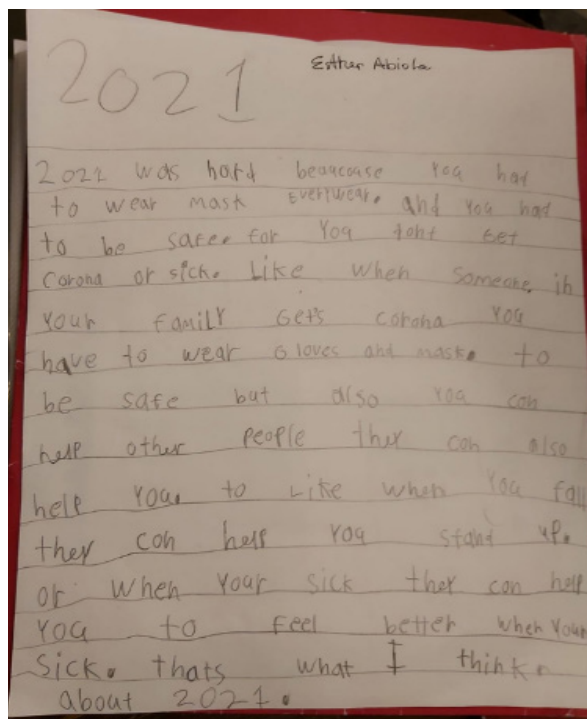 2021
Esther Abiola
2021 was hard beaucause you had
to wear mask everywear. and you had
to be safe. for you dont get
corona or sick. Like when someone in
your family gets corona you
have to wear gloves and mask. to
be safe but also you can
help other people they can also
help you. to Like when you fall
they can help you stand up.
or when your sick they can help
you to feel better when your
sick. thats what I think
about 2021.